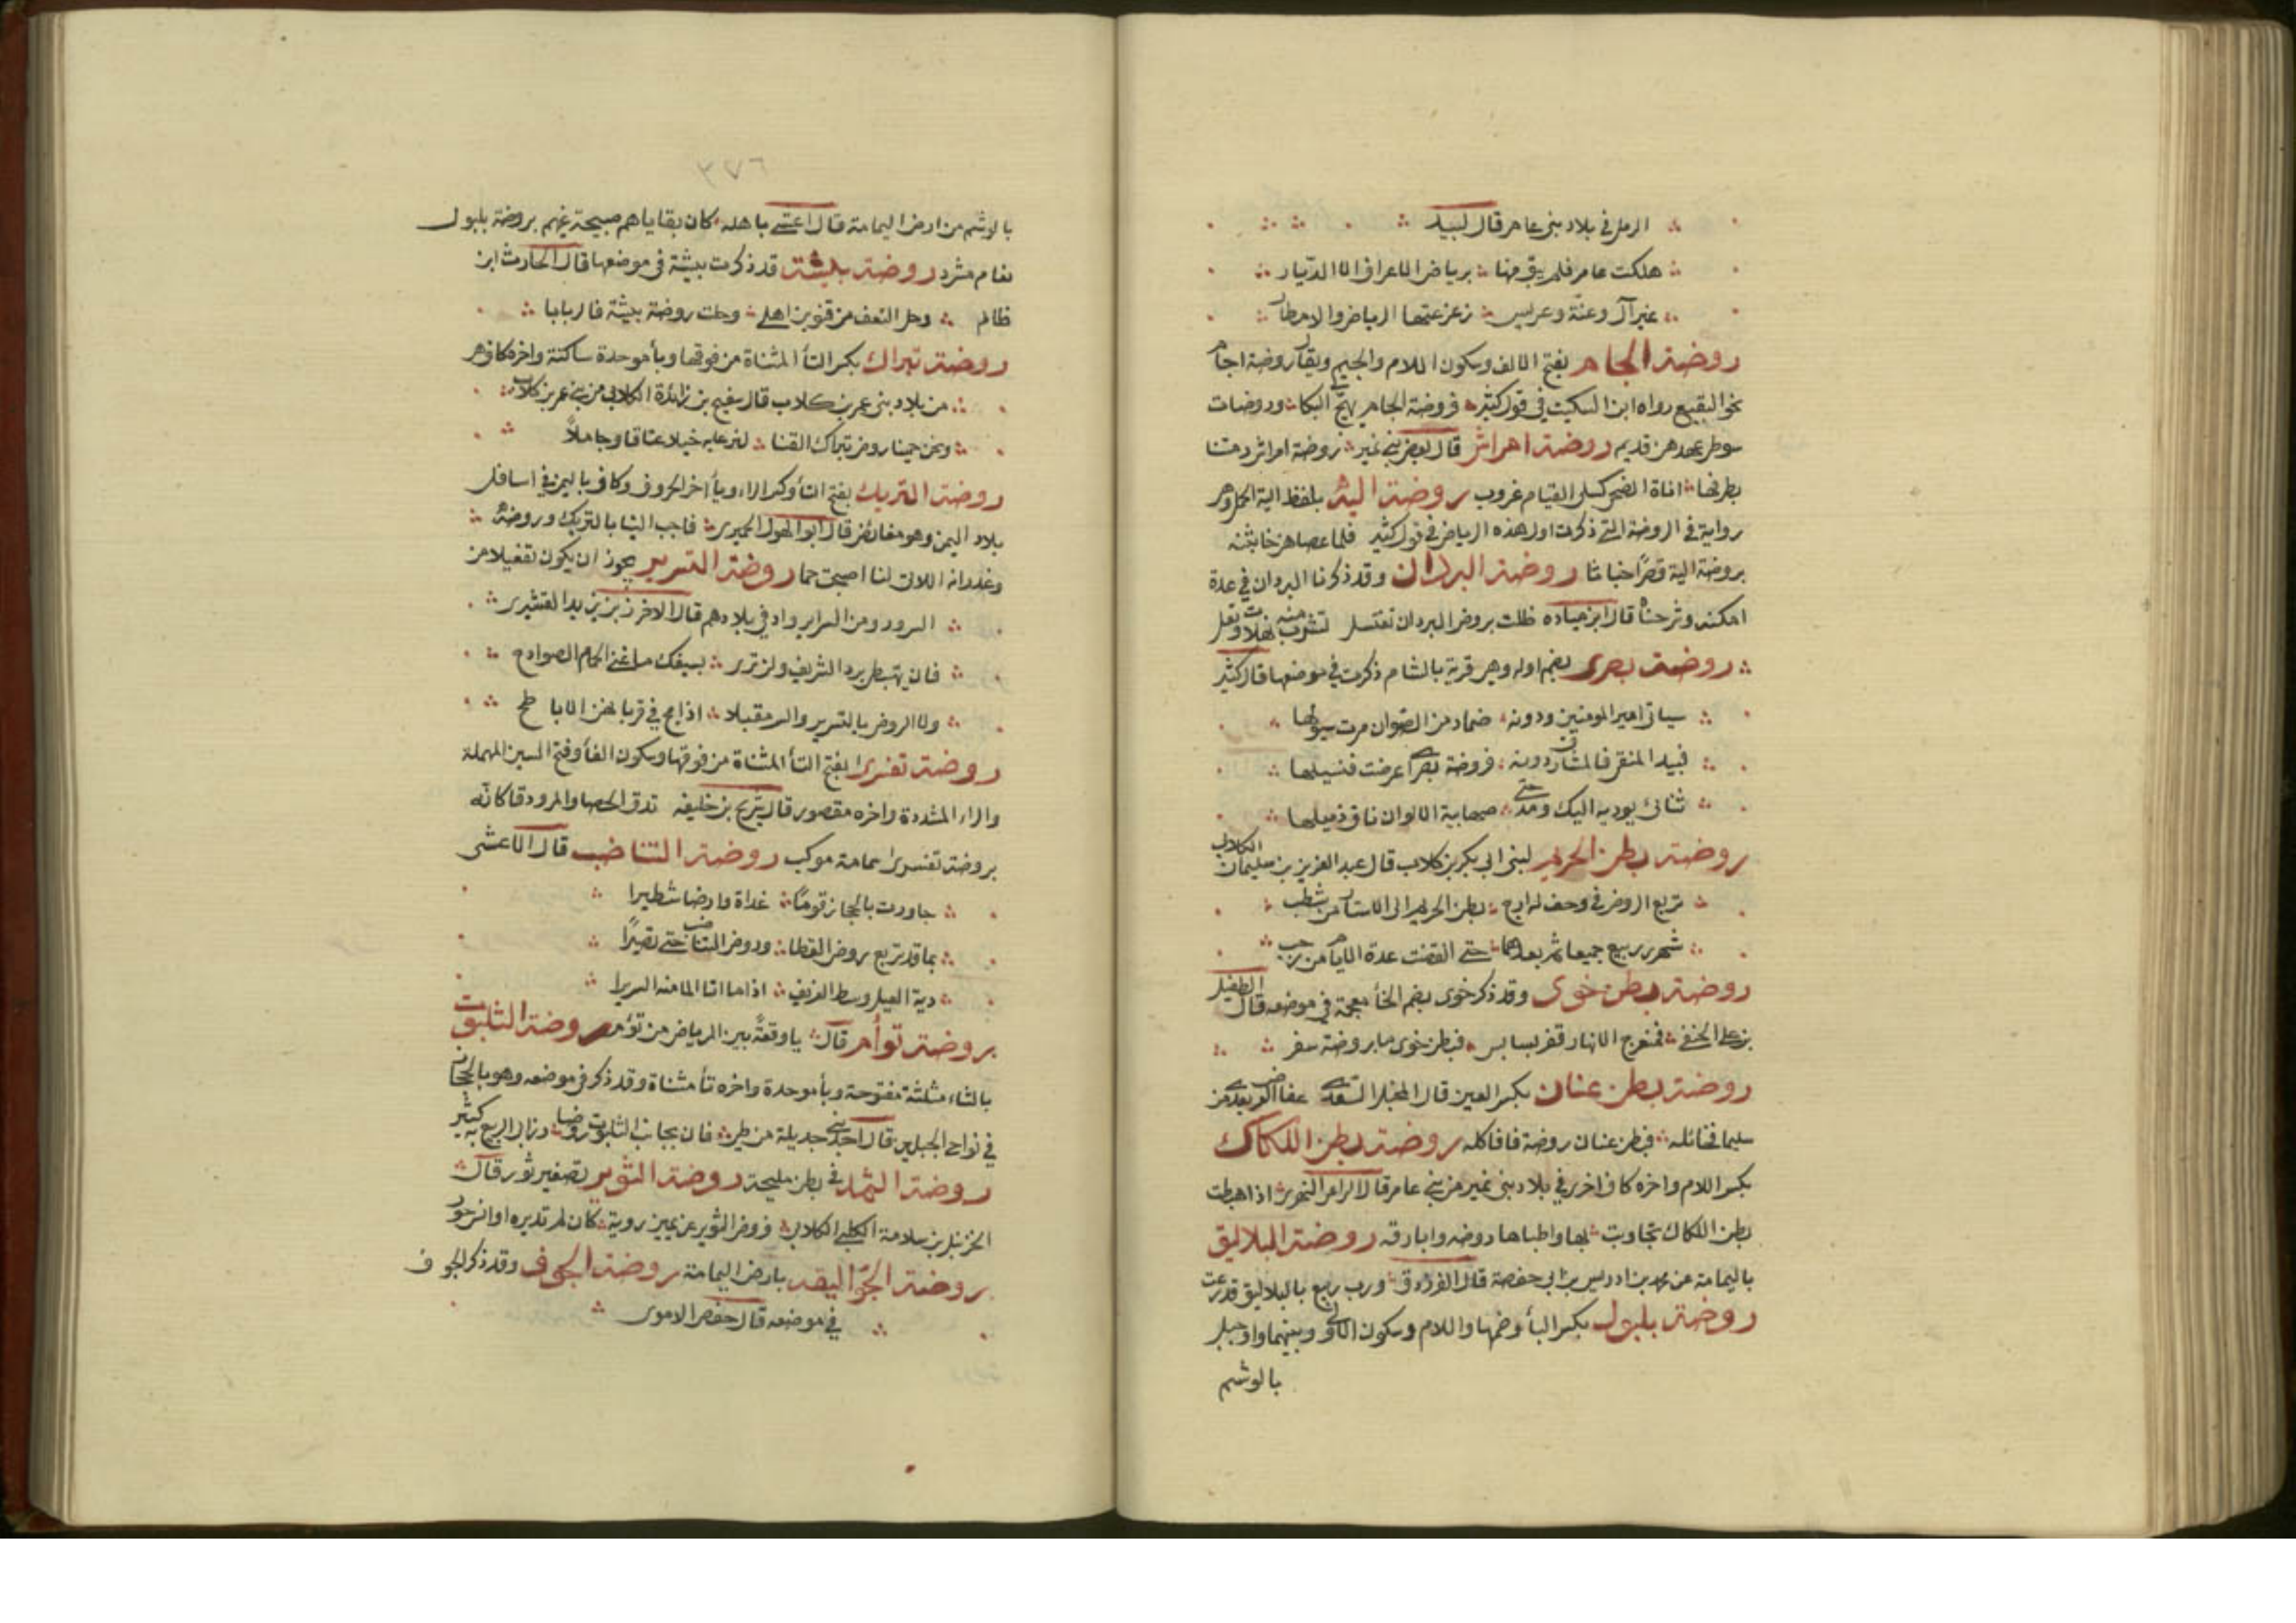 الرمل في بلاد بني عامر قال لبيد
هلكت عامر فلم يبق منها برياض الاعراف الا الديار
غير آل وعنة وعريس زعزعتها الرياض والامطار
روضة الجام بفتح الالف وسكون اللام والجيم ويقال روضة اجام
نحو البقيع رواه ابن السكيت في قول كثير فروضة الجام تهيج البكا وروضات
شوطى عهدهن قديم روضة امراش قال بعض بني نمير روضة امراش رمتنا
بطرفها اناة الضحى كسلى القيام عروب روضة الية بلفظ الية الحمل وهو
رواية في الروضة التي ذكرت اول هذه الرياض في قول كثير فلما عصاهن خابثنه
بروضة الية قصرا خباثا روضة البردان وقد ذكرنا البردان في عدة
امكنة وشرحناه قال ابن مياده ظلت بروض البردان تغتسل تشرب منه نهلات وتعل
روضة بصرى بضم اوله وهي قرية بالشام ذكرت في موضعها قال كثير
سياتي امير المومنين ودونه ضماد من الصوان مرت سيولها
فبيد المنقى فالمشارف دونه فروضة بصرى اعرضت فنسيلها
ثنائى يوديه اليك ومدحتى صهابية الالوان ناق ذميلها
روضة بطن الحريم لبني ابي بكر بن كلاب قال عبد العزيز بن سليمان الكلابي
تربع الروض في وحف له ارج بطن الحريم الى الاستار من شطب
شهرى ربيع جميعا ثم بعدهما حتى انقضت عدة الايام من رجب
روضة بطن خوى وقد ذكر خوى بضم الخأ معجمة في موضعه قال الطفيل
بن علي الحنفي فمنعرج الانهار قفر بسابس فبطن خوى ما بروضة سفر
روضة بطن عنان بكسر العين قال المخبل السعدي عفا العرض بعدي من
سليما فحائله فبطن عنان روضة فافاكله روضة بطن اللكاك
بكسر اللام واخره كاف اخرى في بلاد بني نمير من بني عامر قال الراعي النميري اذا هبطت
بطن اللكاك تجاوبت بها واطباها روضه وابارقه روضة البلاليق
باليمامة عن محمد بن ادريس بن ابي حفصة قال الفرزدق ورب ربيع بالبلاليق قد رعت
روضة بلبول بكسر البأ وضمها واللام وسكون الكاف وبينهما واو جبل
بالوشم
٣٧٦
بالوشم من ارض اليمامة قال اعشى باهله كان بقاياهم صبيحة غيهم بروضة بلبول
نعام مشرد روضة بيشة قد ذكرت بيشة في موضعها قال الحارث ابن
ظالم وحل النعف من قنوين اهلي وحلت روضة بيشة فالربابا
روضة تبراك بكسر التأ المثناة من فوقها وبأ موحدة ساكنة واخره كاف وهو
من بلاد بني عمرو بن كلاب قال سفيح بن زائدة الكلابي من بني عمرو بن كلاب
ونحن حمينا روض تبراك القنا لنرعى به خيلا عتاقا وجاملا
روضة التريك بفتح التأ وكسر الراء ويأ اخر الحروف وكاف باليمن في اسافل
بلاد اليمن وهو مغائض قال ابو الهول الحميري فاجب الثنا بالتريك وروضة
وغدرانه اللاتي لنا اصبحت حما روضة التسرير يجوز ان يكون تفعيلا من
السرور ومن السراير واد في بلادهم قال الاخرز بن يزيد القشيري
فان تهبطي برد الشريف ولن ترى بسيفك ما غنى الحمام الصوادح
ولا الروض بالتسرير والسر مقبلا اذا مج في قريانهن الاباطح
روضة تفسرا بفتح التأ المثناة من فوقها وسكون الفأ وفتح السين المهملة
والراء المشددة واخره مقصور قال شريح بن خليفه تدق الحصا والمرو دقا كانه
بروضة تفسرى سمامة موكب روضة التناضب قال الاعشى
جاورت بالحجاز قوما غداة وارضا شطيرا
بما قد تربع روض القطا وروض التناضب حتى تصيرا
دية الغيل وسط الغريف اذا ما اتا الما منه السريرا
روضة توأم قال يا وقعة بين الرياض من توأم روضة الثلبوت
بالثاء مثلثة مفتوحة وبأ موحدة واخره تأ مثناة وقد ذكر في موضعه وهو بالحجاز
في نواحي الجبلين قال احد بني جديلة من طي فان بجانب الثلبوت روضا وزال الربيع به كثير
روضة الثمد في بطن مليحة روضة الثوير تصغير ثور قال
الخرنبل بن سلامة الكلبي الكلابي فروض الثوير عن يمين روية كان لم تديره اوانس حور
روضة الجوّ اليقد بارض اليمامة روضة الجوف وقد ذكر الجوف
في موضعه قال حفص الاموى